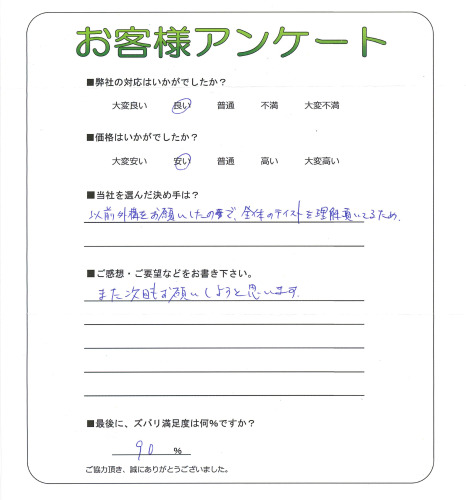 お客様アンケート
■弊社の対応はいかがでしたか？
大変良い 良い 普通 不満 大変不満
■価格はいかがでしたか？
大変安い 安い 普通 高い 大変高い
■当社を選んだ決め手は？
以前外構をお願いしたので、全体のテイストを理解頂いてるため
■ご感想・ご要望などをお書き下さい。
また次回もお願いしようと思います。
■最後に、ズバリ満足度は何％ですか？
90 ％
ご協力頂き、誠にありがとうございました。